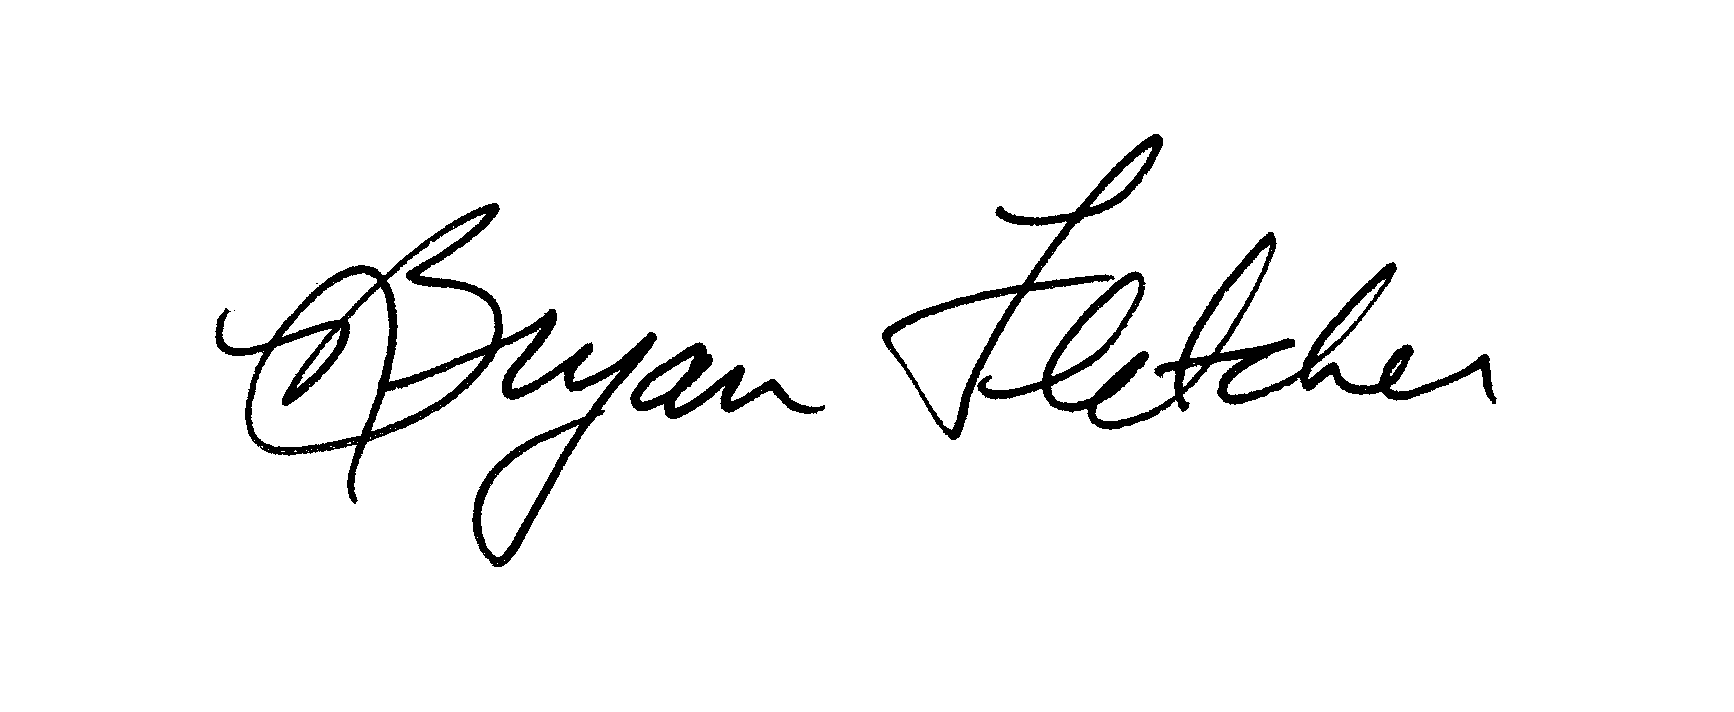 Bryan Fletcher